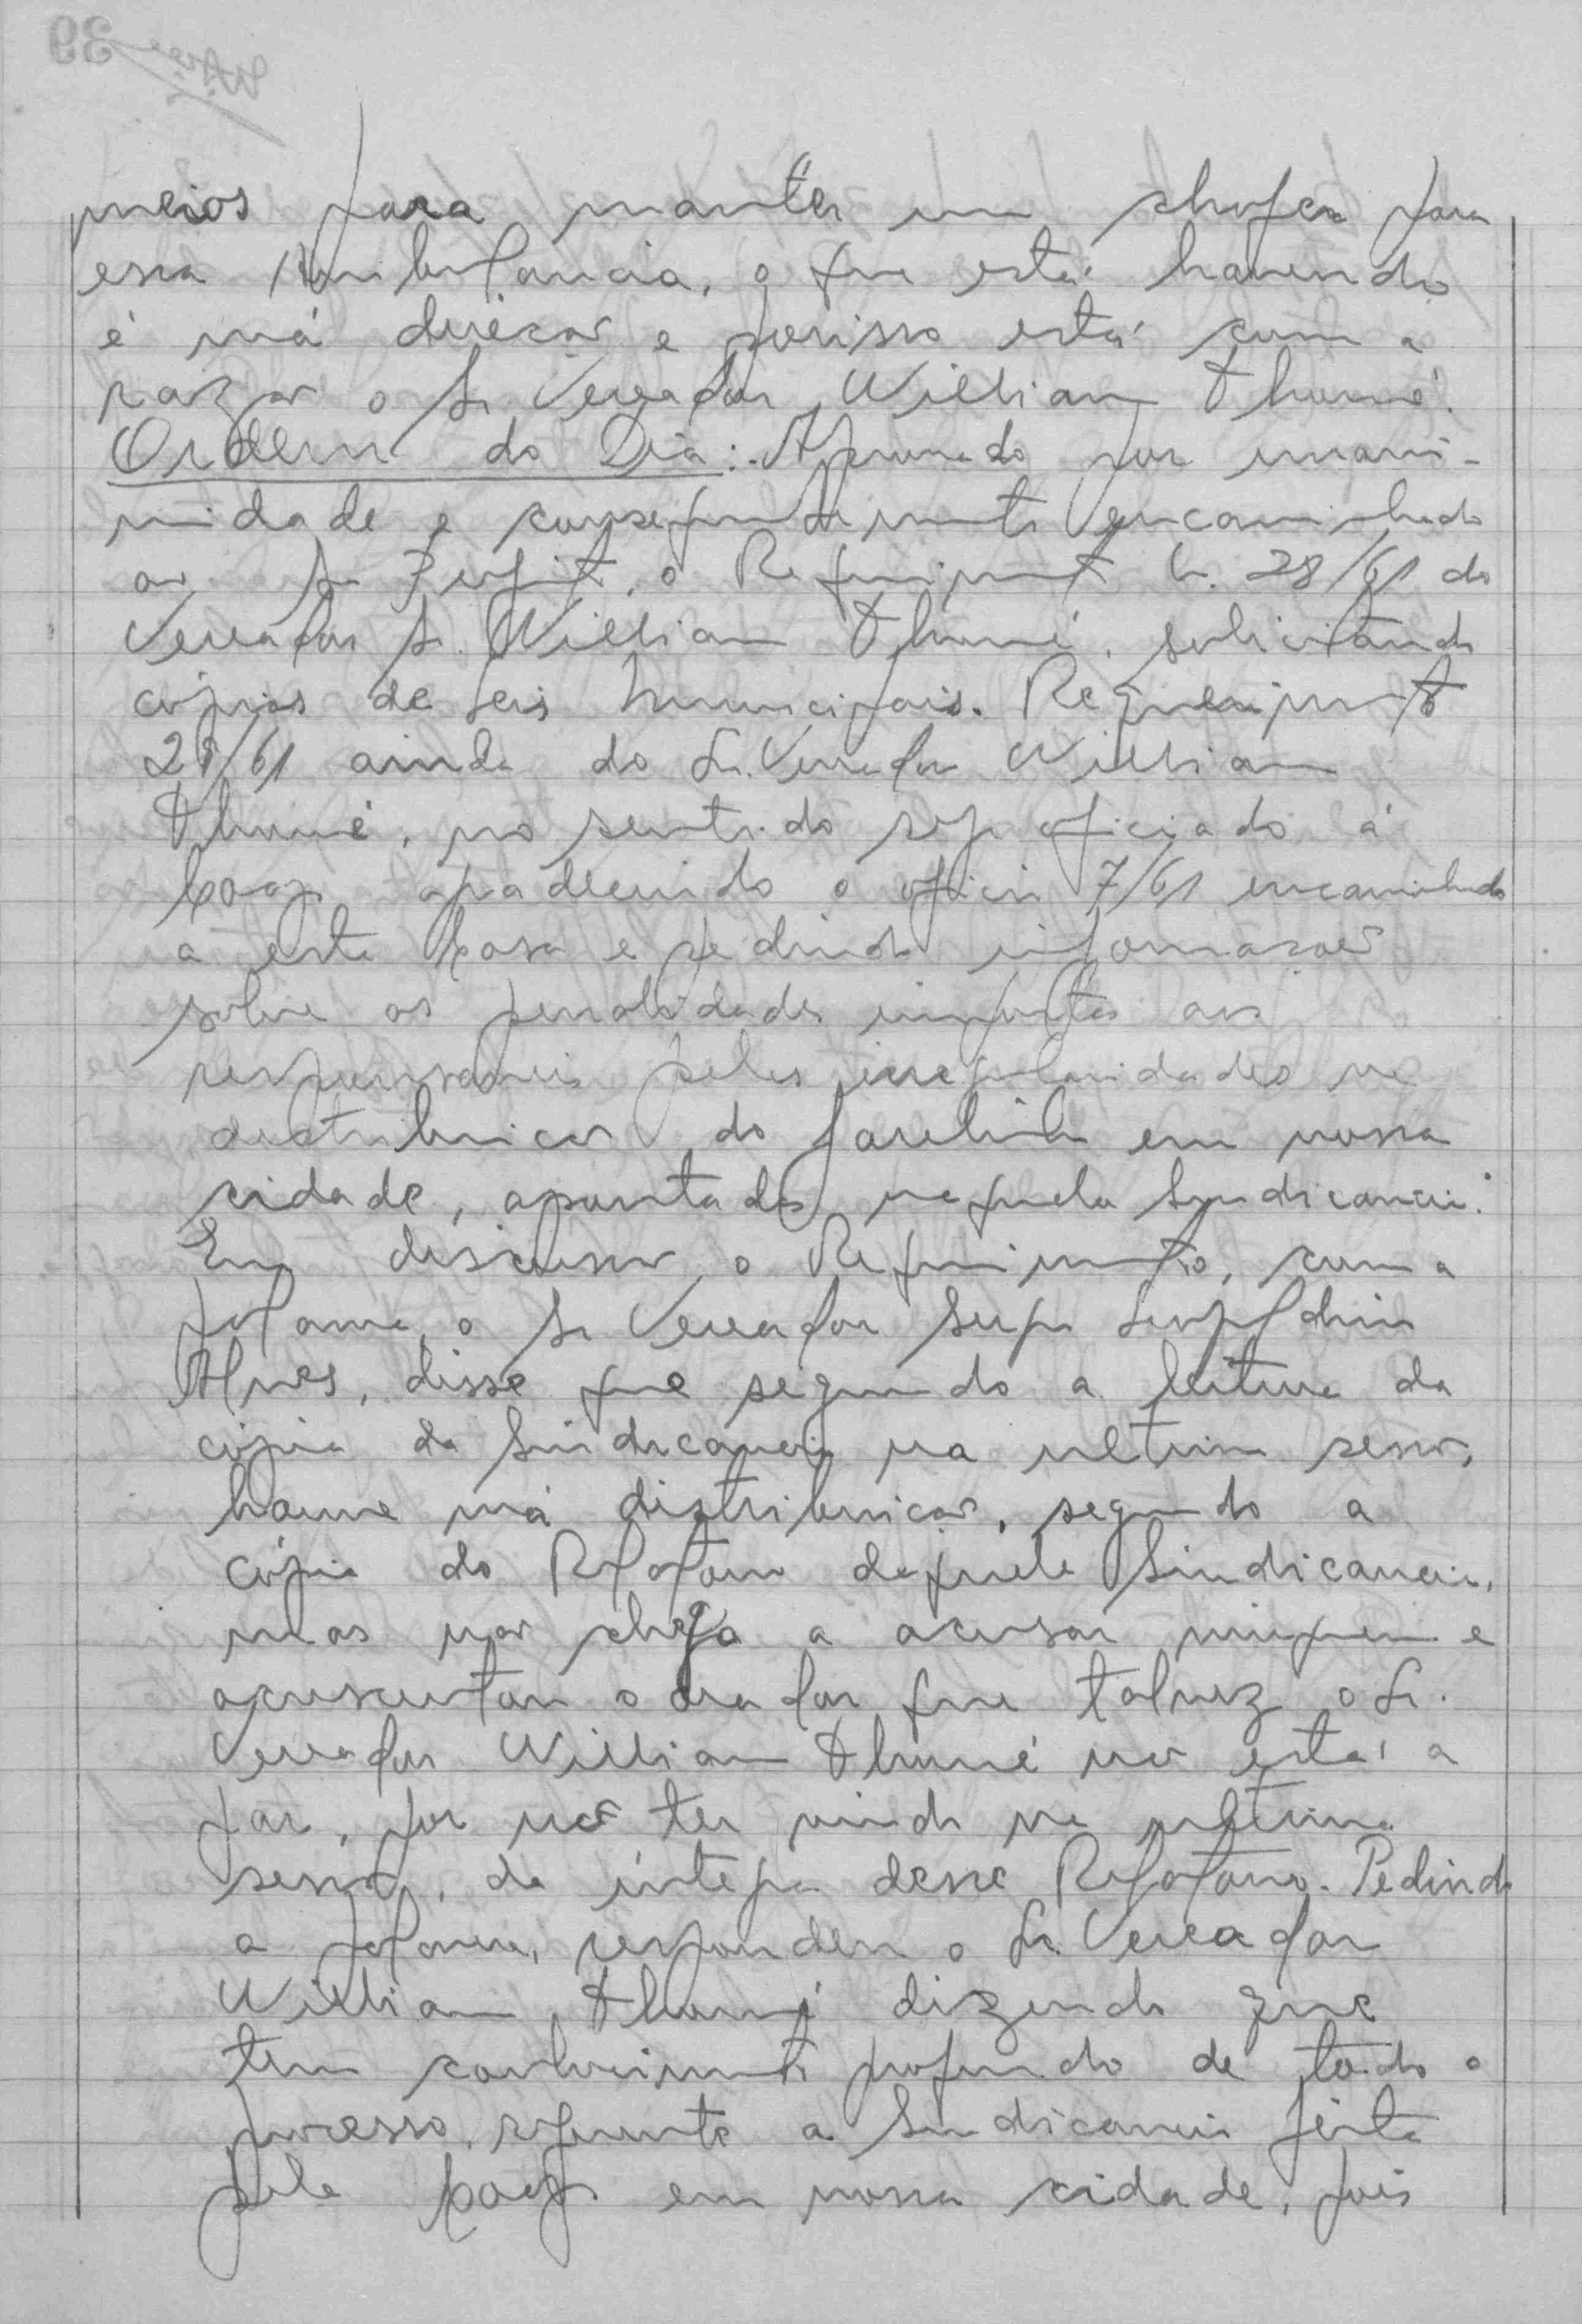 meios para manter um chofer para
essa Ambulancia, o que está havendo
é má direcão e porisso está com a
razão o Sr Vereador William Thomé.
Ordem do Dia:. Aprovado por unani-
midade e consequentemente encaminhado
ao Sr Prefeito, o Requerimento n. 28/61 do
Vereador Sr. William Thomé, solicitando
cópias de Leis Municipais. Requerimento
29/61 ainda do Sr. Vereador William
Thomé, no sentido seja oficiado á
Coap agradecendo o oficio 7/61 encaminhado
a esta Casa e pedindo informacões
sobre as penalidades impostas aos
responsaveis pelas irregularidades na
distribuicão do farelinho em nossa
cidade, apontada naquela Sindicancia.
Em discussão o Requerimento, com a
palavra o Sr Vereador Sergio Leopoldino
Alves, disse que segundo a leitura da
cópia da Sindicancia na ultima sessão,
houve má distribuicão, segundo a
cópia do Relatorio daquela Sindicancia,
mas não chega a acusar ninguem e
acrescentou o orador que talvez o Sr.
Vereador William Thomé não está a
par, por não ter vindo na ultima
sessão, da íntegra desse Relatorio. Pedindo
a palavra, respondeu o Sr. Vereador
William Thomé dizendo que
tem conhecimento profundo de todo o
processo, referente a Sindicancia feita
pela Coap em nossa cidade, pois